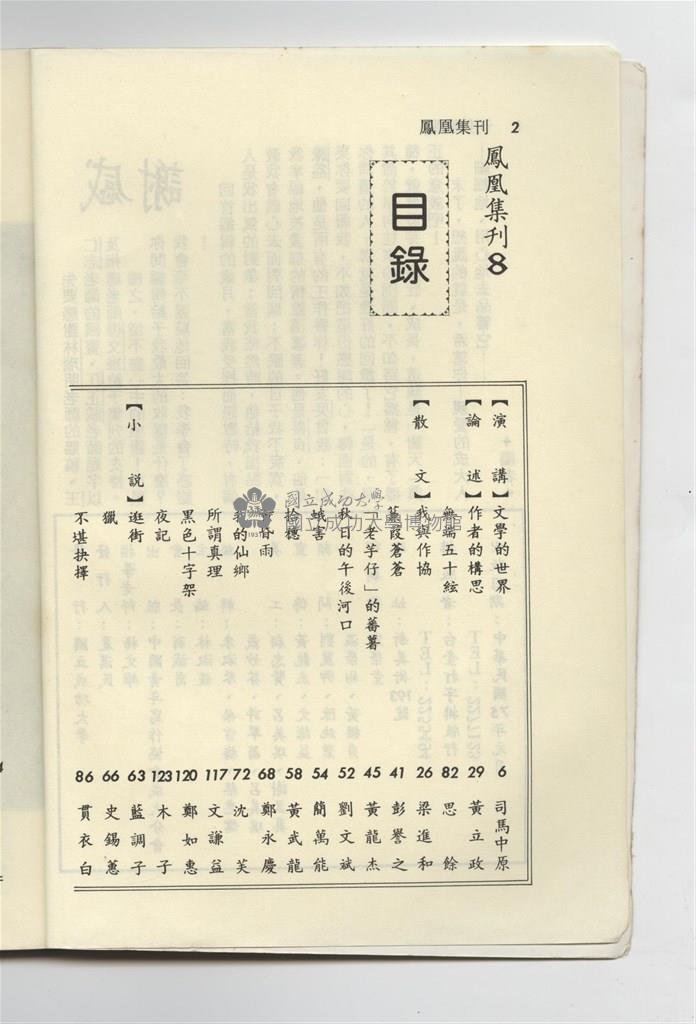 鳳凰集刊 2
鳳凰集刊8
目錄
【演講】文學的世界 6 司馬中原
【論述】作者的構思 29 黃立政
無端五十絃 82 思餘
【散文】我與作協 26 梁進和
蒼蒼 41 彭譽之
「老芋仔」的蕃薯 45 黃龍杰
秋日的午後河口 52 劉文斌
害 54 簡萬能
拾穗 58 黃武龍
雨 68 鄭永慶
我的仙鄉 72 沈芙
所謂真理 117 文謙益
黑色十字架 120 鄭如惠
夜記 123 木子
【小說】逛街 63 藍調子
獵 66 史錫蕙
不堪抉擇 86 貫衣白
國立成功大學
國立成功大學博物館
1931